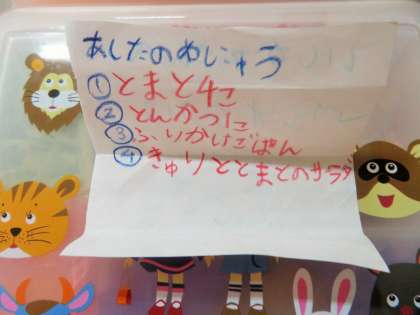 あしたのめにゅう
①とまと4こ
②とんかつ1こ
③ふりかけごはん
④きゅりととまとのサラダ